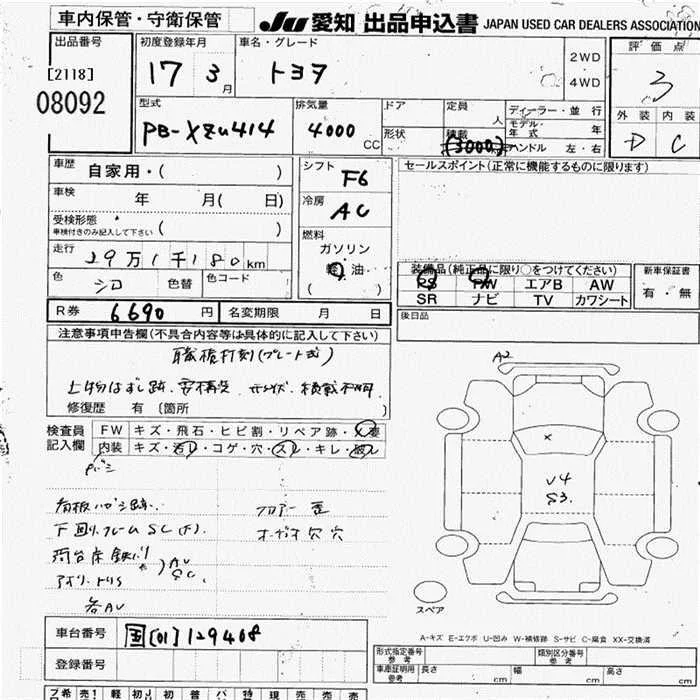 車内保管・守衛保管
JU 愛知 出品申込書 JAPAN USED CAR DEALERS ASSOCIATION
出品番号
[2118]
08092
初度登録年月
17 3月
車名・グレード
トヨタ
2WD
4WD
評価点
3
外装 内装
D C
型式
PB-XZU414
排気量
4000 CC
ドア
形状
定員
人
積載
(3000)
ディーラー・並行
モデル年式 年
ハンドル 左・右
車歴 自家用・( )
車検 年 月( 日)
受検形態
車検付きのみ記入して下さい ( )
走行 29万1千180km
色 シロ 色替 色コード
シフト F6
冷房 AC
燃料
ガソリン
軽油
( )
セールスポイント(正常に機能するものに限ります)
装備品(純正品に限り○をつけてください)
PS PW エアB AW
SR ナビ TV カワシート
新車保証書
有・無
後日品
R券 6690円 名変期限 月 日
注意事項申告欄(不具合内容等は具体的に記入して下さい)
職権打刻(プレート式)
修復歴 有 〔箇所 〕
検査員記入欄
FW キズ・飛石・ヒビ割・リペア跡・X要
内装 キズ・汚レ・コゲ・穴・スレ・キレ・破レ
看板ハガシ跡
フロアー 歪
下回りフレームSC(下)
荷台床鉄バリ
AU
SC
各AU
A2
U4
S3.
スペア
A-キズ E-エクボ U-凹み W-補修跡 S-サビ C-腐食 XX-交換済
車台番号 国[01]129468
登録番号
形式指定番号
参考
類別区分番号
参考
車庫証明用
参考
長さ cm 幅 cm 高さ cm